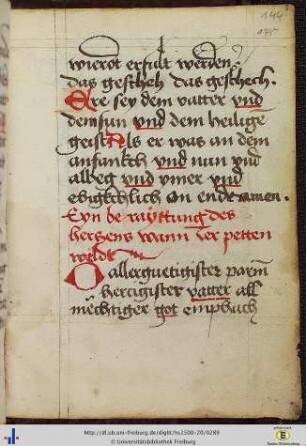 144
175
wierdt erfult werden
das gescheh das geschech.
Ere sey dem vatter vnd
dem sun vnd dem heilige
geist Als er was an dem
anfankch vnd nun vnd
albeg vnd ymer vnd
ebigkchlich on ende amen.
Eyn be rayttung des
herczens wann der petten
weldt
O allerguetigister parm
herczigister vatter all
mechtiger got emphach
http://dl.ub.uni-freiburg.de/diglit/hs1500-20/0289
© Universitätsbibliothek Freiburg